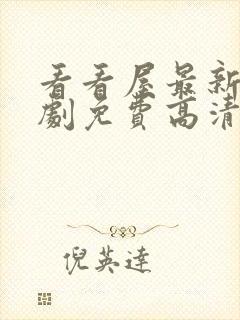 看看屋最新
劇免費高清
倪英達